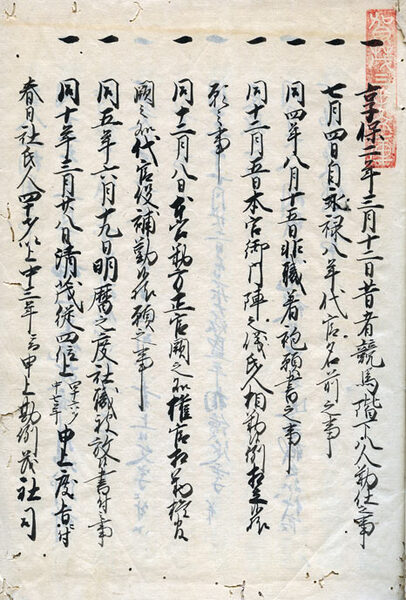 一 享保二年三月十二日昔者競馬階下人勤仕之事
一 七月四日自永禄八年代官名前之事
一 同四年八月十五日非職着袍願書之事
一 同十二月五日本宮御門陣之儀氏人相勤例
之事
一 同十二月八日本宮勤方正官闕之処権官相勤権官
闕之処代官役補勤候様願之事
一 同五年六月十九日明暦之度社職被放候書付之事
一 同十年三月廿八日清茂従四位上 四十一才 中七年 申上度旨付
春日社氏人四十才以上中三年申上勘例茂社司